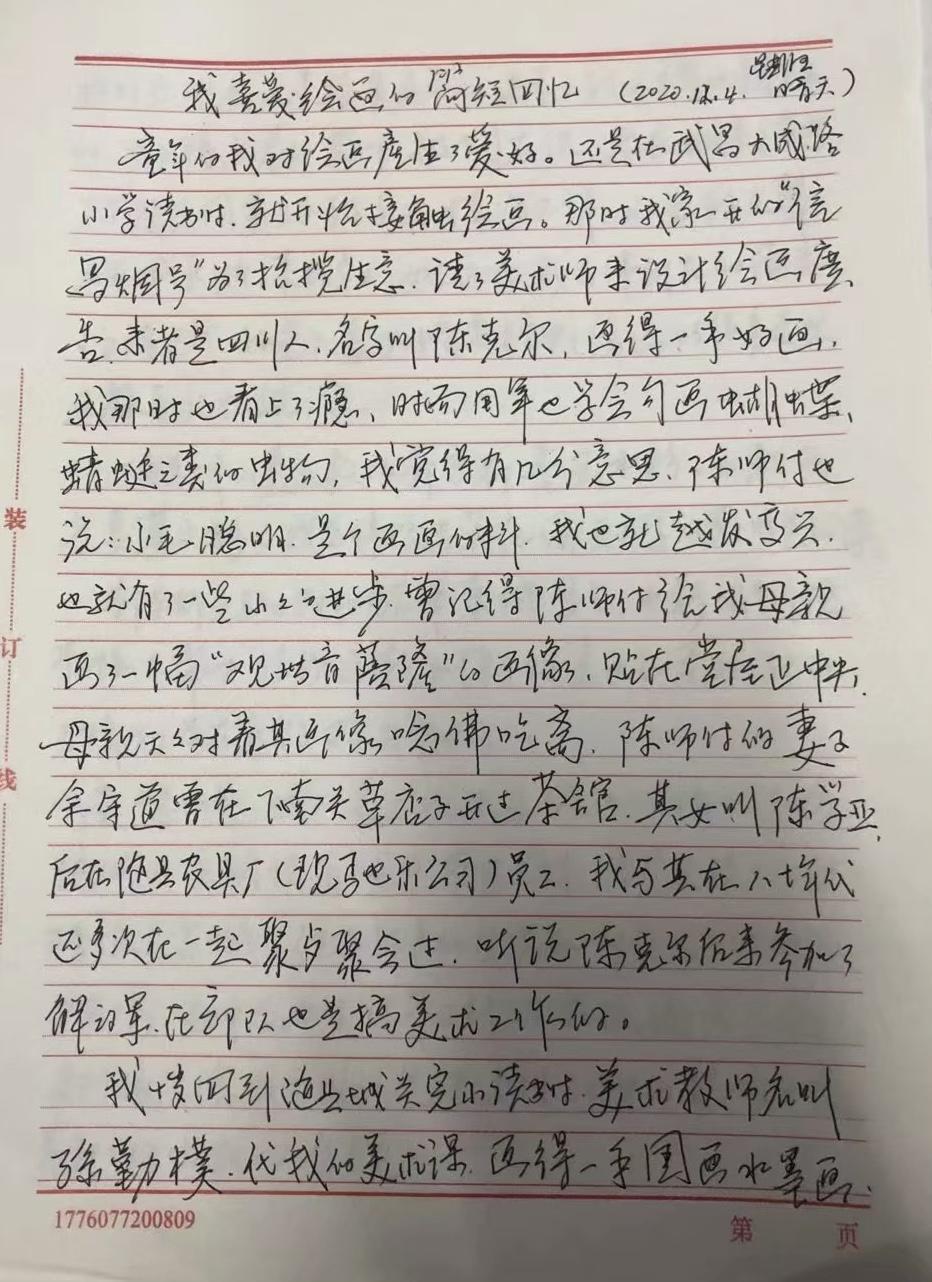 我喜爱绘画的简短回忆 (2020.12.4. 星期五 晴天)
童年的我对绘画产生了爱好。还是在武昌大成路
小学读书时.就开始接触绘画。那时我家开的“信
昌烟号”为了招揽生意.请了美术师来设计绘画广
告.来者是四川人.名字叫陈克尔,画得一手好画,
我那时也看上了瘾、时而用笔也学会勾画蝴蝶、
蜻蜓之类的生物,我觉得有几分意思.陈师付也
说:小毛聪明.是个画画的料.我也就越发高兴.
也就有了一些小小进步.曾记得陈师付给我母亲
画了一幅“观世音菩萨”的画像、贴在堂屋正中央,
母亲天天对着其画像唸佛吃斋.陈师付的妻子
余守道曾在下南关草店子开过茶馆.其女叫陈学亚,
后在随县农具厂(现 公司)员工.我与其在八十年代
还多次在一起聚与聚会过.听说陈克尔后来参加了
解放军.在部队也是搞美术工作的。
我十岁回到随县城关完小读书时.美术教师名叫
孙勤朴.代我的美术课.画得一手国画水墨画.
装
订
线
1776077200809
第 页